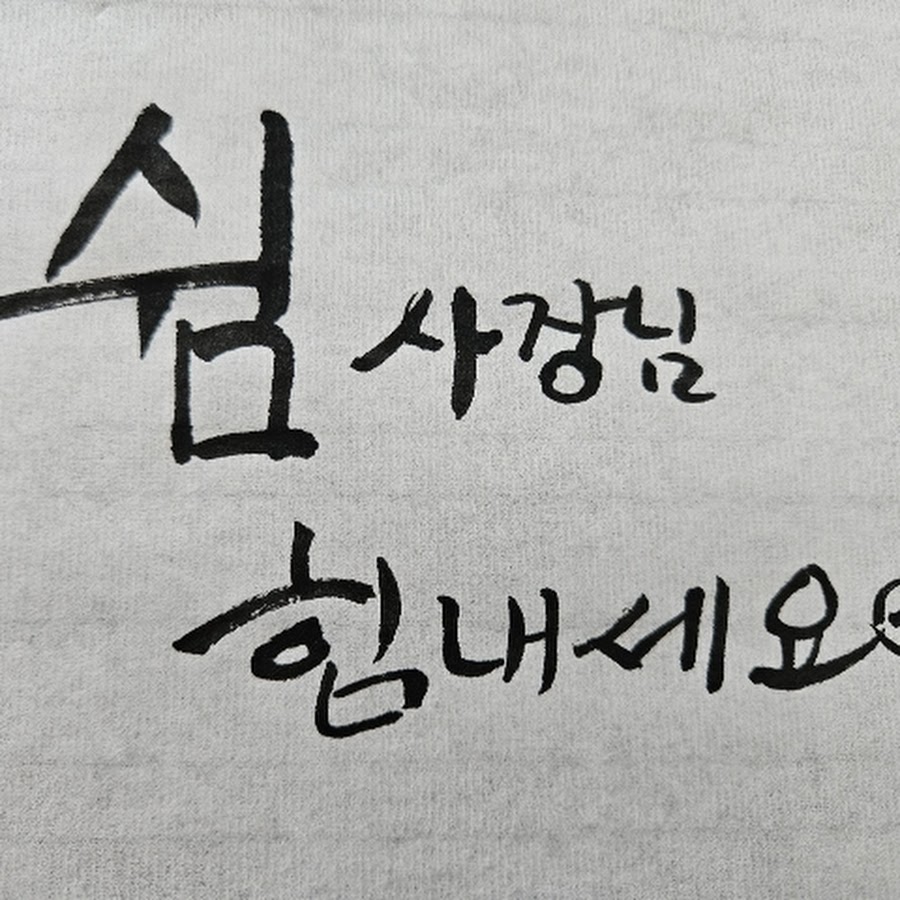 쉼 사장님
힘내세요